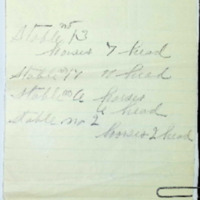 Stable no 13
horses 7 head
Stable 14 10 head
Stable A horses
head
Stable no 2
horses 2 head